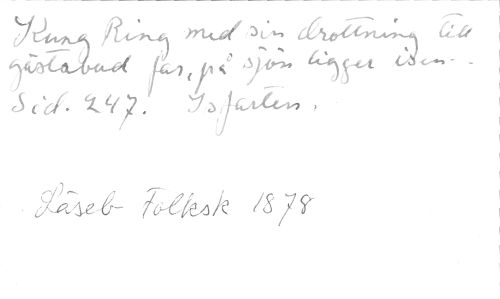 Kung Ring med sin drottning till
gästabud far, på sjön ligger isen - .
Sid. 247. Isfarten.
Läseb Folksk 1878